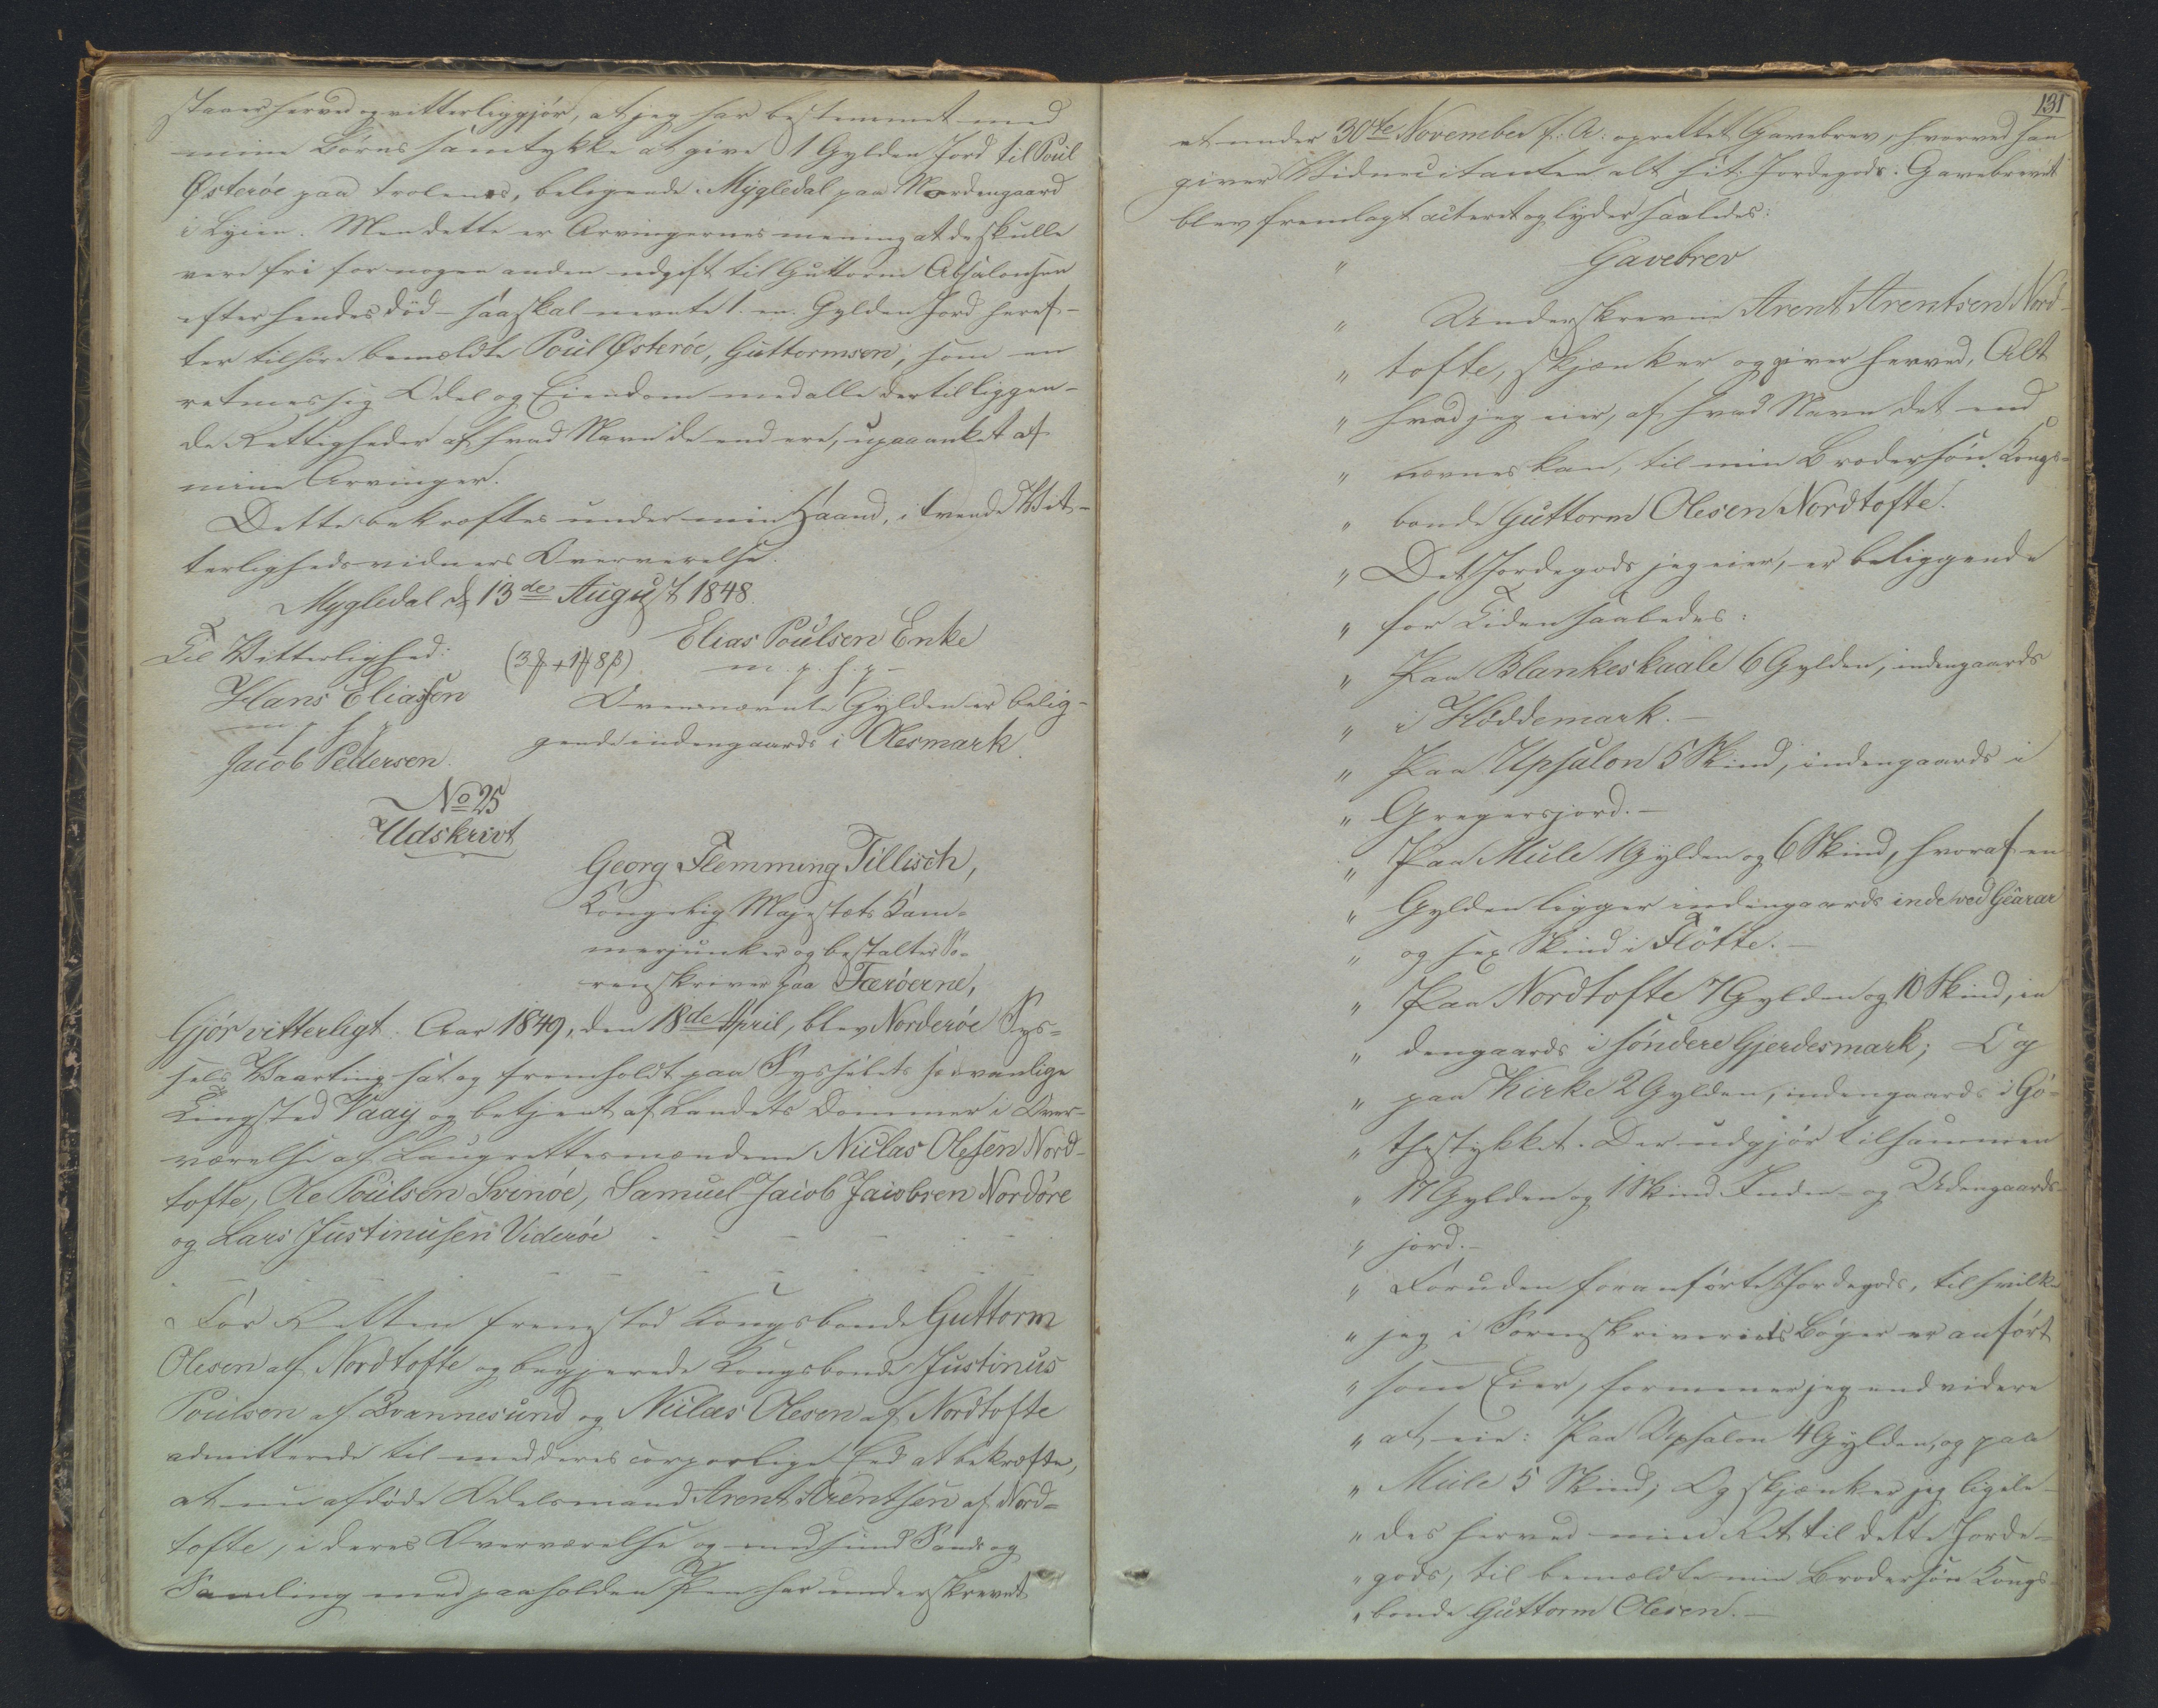 staaer herved og vitterliggjör, at jeg har bestemmet med
mine Börns samtykke at give 1 Gylden Jord til Poul
Østeröe paa trolenes, beligende i Mÿgledal paa Nordengaard
i Lÿien. Men dette er Arvingernes mening at de skulle
vere fri for nogen anden udgift til Guttorm Absalonsen
efter hendes död – saa skal nevnte 1. en. Gylden Jord heref-
ter tilhöre bemeldte Poul Østeröe, Guttormsen, som en
retmessig Odel og Eiendom med alle dertil liggen-
de Rettigheder af hvad Navn de end ere, upaaanket af
mine Arvinger.
Dette bekræftes under min Haand, i tvende Vit-
terlighedsvidners Oververelse.
Mygledal d. 13de August 1848.
Til Vitterlighed:
Elias Poulsen Enke
m. p. f. p –
Hans Eliassen
m. p. f. p
Jacob Pedersen.
Ovennævnte Gylden er belig-
gende indengaards i Olesmark.
No 25
Udskrivt
Georg Flemming Tillisch,
Kongelig Majestæts Kam-
merjunker og bestalter So-
renskriver paa Færöerne,
Gjör vitterligt: Aar 1849, den 18de April, blev Norderöe Sys-
sels Vaarting sat og fremholdt paa Sysselets sædvanlige
Tingsted Vaaÿ og betjent af Landets Dommer i Over-
værelse af Laugrettesmændene Niclas Olesen Nord-
tofte, Ole Poulsen Svinöe, Samuel Jacob Jacobsen Nordöre
og Lars Justinusen Videröe
For Retten fremstod Kongsbonde Guttorm
Olesen af Nordtofte og begjerede Kongsbonde Justinus
Poulsen af Qvannesund og Niclas Olesen af Nordtofte
admitterede til med deres corporlige Eed at bekræfte,
at nu afdöde Odelsmand Arent Arentsen af Nord-
tofte, i deres Overværelse og med sund Sands og
Samling med paaholden Pen har underskrevet
131
et under 30te November f: A: oprettet Gavebrev, hvorved han
giver Vidnecitanten alt sit Jordegods. Gavebrevet
blev fremlagt acteret og lyder saaledes:
" Gavebrev
" Underskrevne Arent Arentsen Nord-
" tofte, skjænker og giver herved, Alt
" hvad jeg eier, af hvad Navn det end
" nævnes kan, til min Brodersön Kongs-
" bonde Guttorm Olesen Nordtofte.
" Det Jordegods jeg eier, er beliggende
" for Tiden saaledes:
" Paa Blankeskaale 6 Gylden, indengaards
" i Höddemark. –
" Paa Upsalon 5 Skind, indengaards i
" Gregersjord. –
" Paa Mule 1 Gylden og 6 Skind, hvoraf en
" Gylden ligger indengaards inde ved Gearar
" og sex Skind i Flötte. –
" Paa Nordtofte 7 Gylden og 10 Skind, in
" dengaards i söndere Gjerdesmark; Og
" paa Kirke 2 Gylden, indengaards i Gö-
" thestykket. Der udgjör tilsammen
" 17 Gylden og 1 Skind Inden- og Udengaards-
" jord. –
" Foruden foranförte Jordegods, til hvilke
" jeg i Sorenskriveriets Böger er anfört
" som Eier, formener jeg end videre
" at eie: Paa Upsalon 4 Gylden, og paa
" Mule 5 Skind; Og skjænker jeg ligele-
" des herved min Ret til dette Jorde-
" gods, til bemeldte min Brodersön Kongs-
" bonde Guttorm Olesen. –